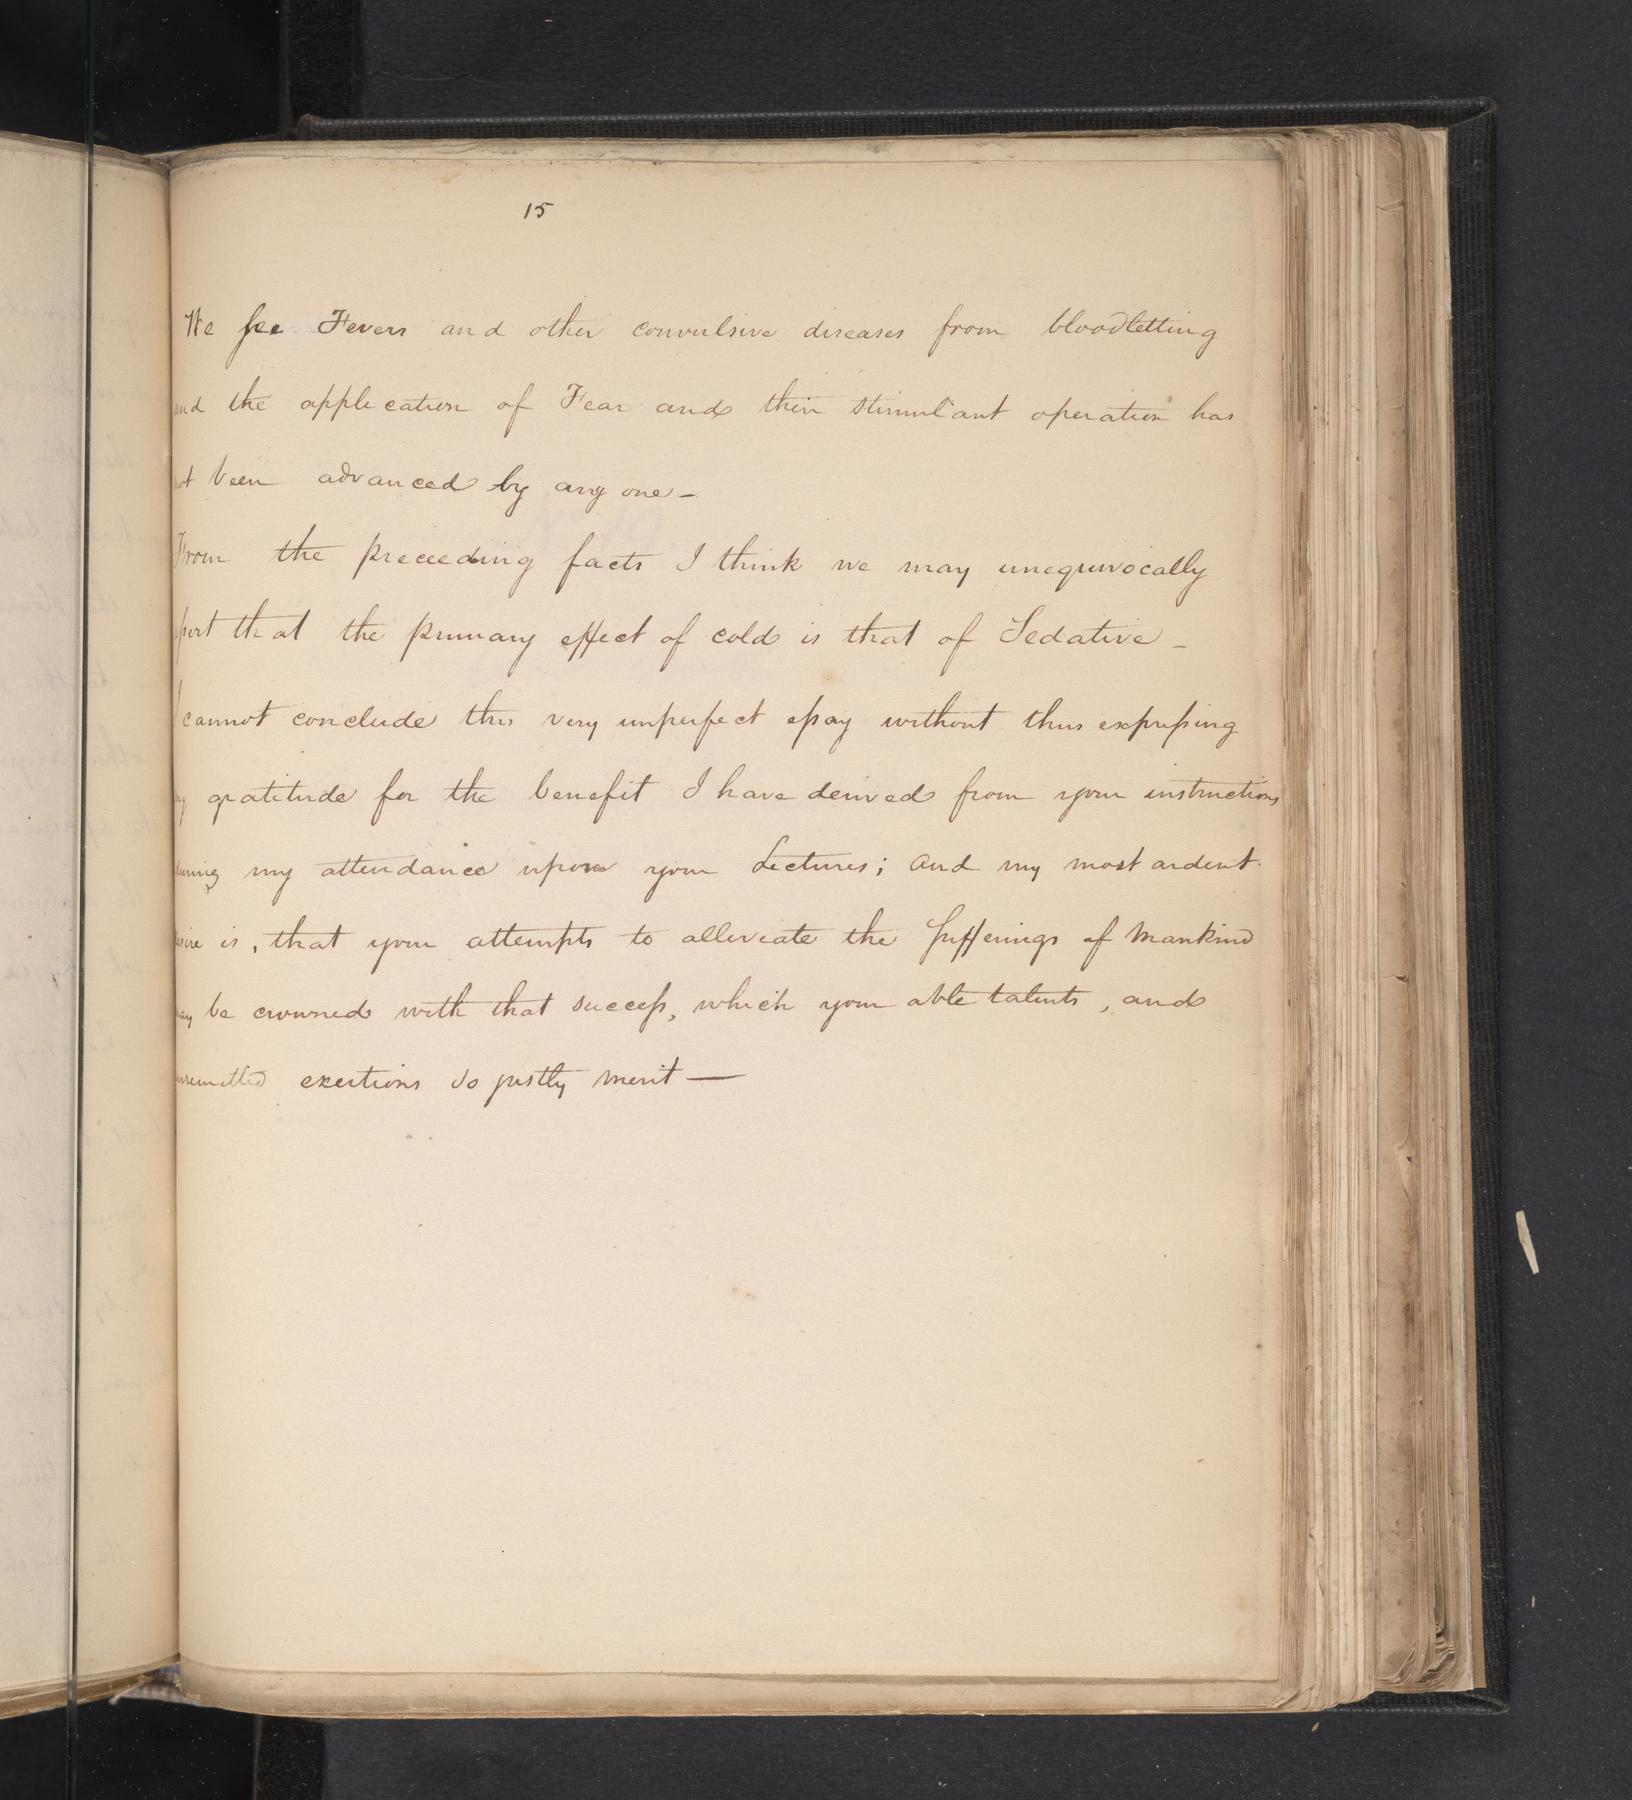 15
We see Fevers and other convulsive diseases from bloodletting
and the application of Fear and their stimulant operation has
not been advanced by any one —
From the preceeding facts I think we may unequivocally
assert that the primary effect of cold is that of Sedative —
I cannot conclude this very imperfect essay without thus expressing
my gratitude for the benefit I have derived from your instructions
during my attendance upon your Lectures; and my most ardent
desire is, that your attempts to alleviate the Sufferings of Mankind
may be crowned with that success, which your able talents, and
unremitted exertions so justly merit —